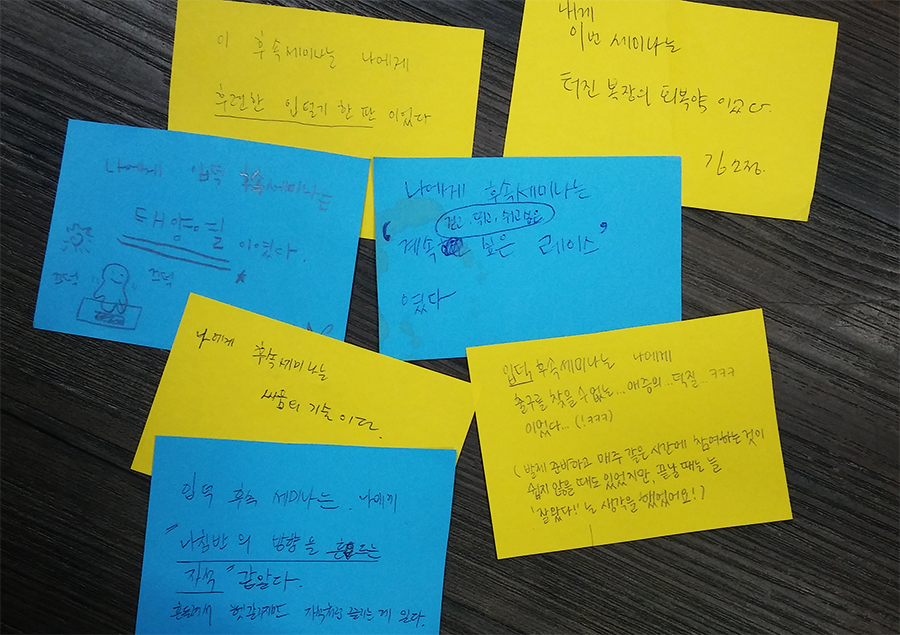 이 후속세미나는 나에게
후련한 입덜기 한 판 이었다
내게
이번 세미나는
터진 복장의 회복약 이었다.
김소정.
나에게 입덕 후속세미나는
태양의 길 이었다.
끄덕 끄덕
나에게 후속세미나는
걷고, 뛰고, 쉬고 싶은
'계속 싶은 레이스'
였다
나에게 후속세미나는
싸움의 기술 이다.
입덕 후속세미나는 나에게
출구를 찾을 수 없는... 애증의... 덕질... ㅋㅋㅋ
이었다... (!ㅋㅋㅋ)
(발제 준비하고 매주 같은 시간에 참여하는 것이
쉽지 않을 때도 있었지만, 끝날 때는 늘
'잘왔다!' 는 생각을 했었어요!)
입덕 후속 세미나는 나에게
"나침반의 방향을 흔드는
자석" 같았다.
헷갈려도 자석처럼 끌리는 게 있다.